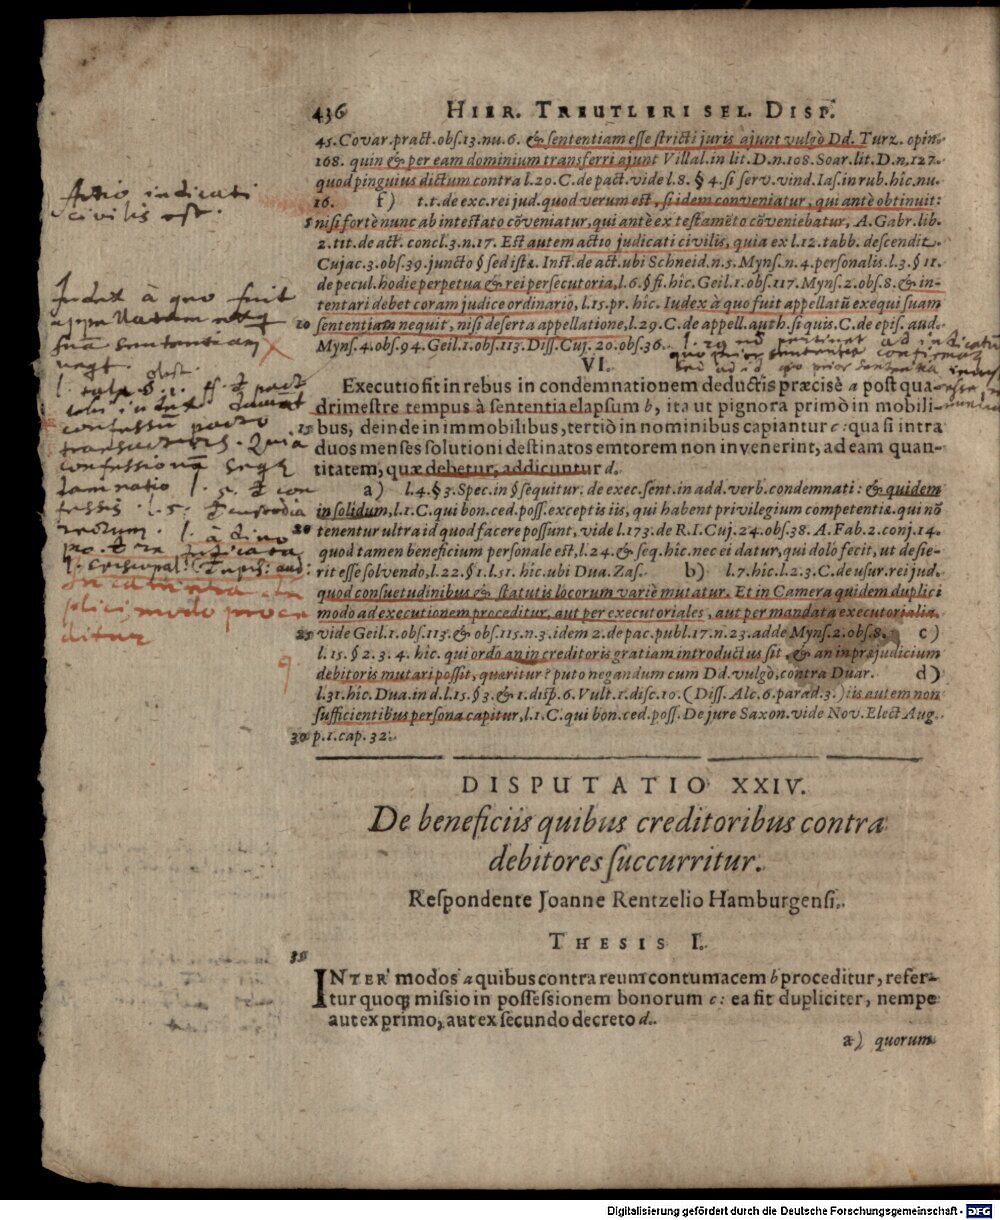 436 HIER. TREUTLERI SEL. DISP.
45. Covar. pract. obs. 13. nu. 6. & sententiam esse stricti juris ajunt vulgò Dd. Turz. opin.
168. quin & per eam dominium transferri ajunt Villal. in lit. D. n. 108. Soar. lit. D. n, 127.
quod pinguius dictum contra l. 20. C. de pact. vide l. 8. § 4. si serv. vind. Ias. in rub. hic. nu.
16. f) t. t. de exc. rei jud. quod verum est, si idem conveniatur, qui antè obtinuit:
5 nisi fortè nunc ab intestato cōveniatur, qui antè ex testamēto cōveniebatur, A. Gabr. lib.
2. tit. de act. concl. 3. n. 17. Est autem actio judicati civilis, quia ex l. 12. tabb. descendit.
Cujac. 3. obs. 39. juncto § sed istæ. Inst. de act. ubi Schneid. n. 5. Myns. n. 4. personalis. l. 3. § 11.
de pecul. hodie perpetua & rei persecutoria, l. 6. § fi. hic. Geil. 1. obs. 117. Myns. 2. obs. 8. & in-
tentari debet coram judice ordinario, l. 15. pr. hic. Iudex à quo fuit appellatū exequi suam
20 sententiam nequit, nisi deserta appellatione, l. 29. C. de appell. auth. si quis. C. de epis. aud.
Myns. 4. obs. 94. Geil. 1. obs. 113. Diss. Cuj. 20. obs. 36.
VI.
Executio fit in rebus in condemnationem deductis præcisè a post qua-
drimestre tempus à sententia elapsum b, ita ut pignora primò in mobili-
bus, deinde in immobilibus, tertiò in nominibus capiantur c: qua si intra
duos menses solutioni destinatos emtorem non invenerint, ad eam quan-
titatem, quæ debetur, addicuntur d.
a) l. 4. § 3. Spec. in § sequitur. de exec. sent. in add. verb. condemnati: & quidem
in solidum, l. 1. C. qui bon. ced. poss. exceptis iis, qui habent privilegium competentiæ. qui nō
tenentur ultra id quod facere possunt, vide l. 173. de R. I. Cuj. 24. obs. 38. A. Fab. 2. conj. 14.
quod tamen beneficium personale est, l. 24. & seq. hic. nec ei datur, qui dolo fecit, ut desie-
rit esse solvendo, l. 22. § 1. l. 51. hic. ubi Dua. Zas. b) l. 7. hic. l. 2. 3. C. de usur. rei jud.
quod consuetudinibus & statutis locorum variè mutatur. Et in Camera quidem duplici
modo ad executionem proceditur, aut per executoriales, aut per mandata executorialia.
25 vide Geil. 1. obs. 113. & obs. 115. n. 3. idem 2. de pac. publ. 17. n. 23. adde Myns. 2. obs. 8. c)
l. 15. § 2. 3. 4. hic. qui ordo an in creditoris gratiam introductus sit, & an in præjudicium
debitoris mutari possit, quæritur? puto negandum cum Dd. vulgò, contra Duar. d)
l. 31. hic. Dua. in d. l. 15. § 3. & 1. disp. 6. Vult. 1. disc. 10. (Diss. Alc. 6. parad. 3.) iis autem non
sufficientibus persona capitur, l. 1. C. qui bon. ced. poss. De jure Saxon. vide Nov. Elect Aug.
30 p. 1. cap. 32.
DISPUTATIO XXIV.
De beneficiis quibus creditoribus contra
debitores succurritur.
Respondente Joanne Rentzelio Hamburgensi.
THESIS I.
INTER modos a quibus contra reum contumacem b proceditur, refer-
tur quoq; missio in possessionem bonorum c: ea fit dupliciter, nempe
aut ex primo, aut ex secundo decreto d.
a) quorum
Actio iudicati
civilis est.
Iudex à quo fuit
appellatum
suā sententiam
In camera du
plici modo proce
ditur
Digitalisierung gefördert durch die Deutsche Forschungsgemeinschaft - DFG